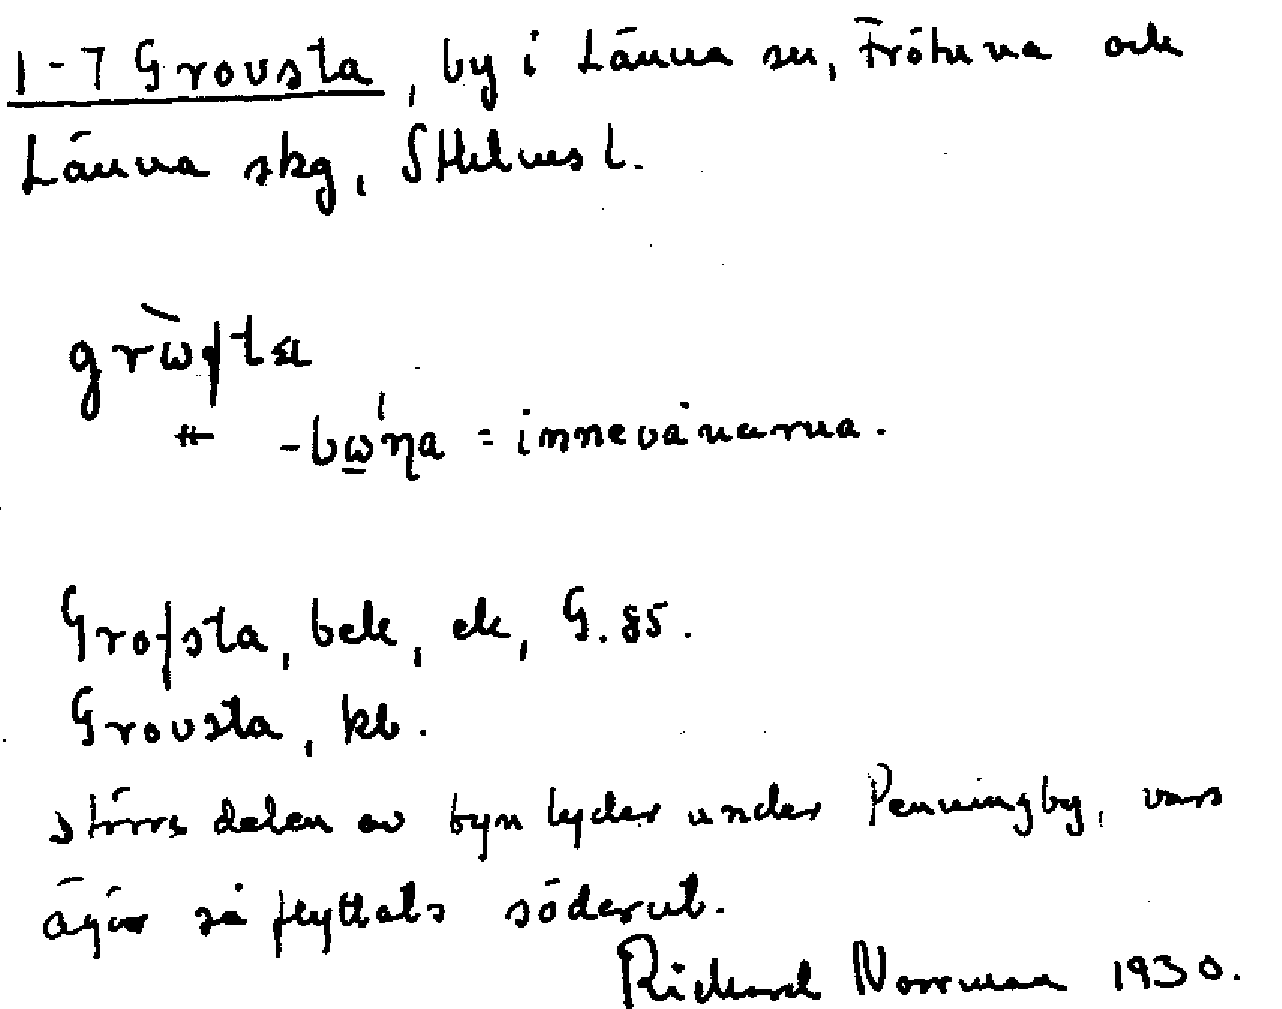 1-7 Grovsta, by i Länna sn, Frötuna och
Länna skg, Sthlms l.
grὼfta
" -bώ̲ŋa = innevånarna.
Grofsta, bek, ek, G.85.
Grovsta, kb.
större delen av byn lyder under Penningby, vars
ägor så flyttats söderut.
Rickard Norrman 1930.